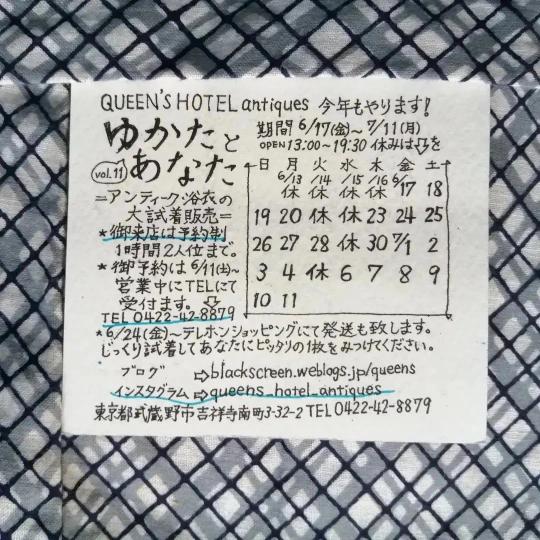 QUEEN'S HOTEL antiques 今年もやります!
ゆかたと
vol.11 あなた
期間 6/17(金)~7/11(月)
OPEN 13:00~19:30 休みは⇩を
=アンティーク浴衣の
大試着販売=
*御来店は予約制
1時間2人位まで。
*御予約は6/11(土)~
営業中にTELにて
受付ます。⇩
TEL 0422-42-8879
日 月 火 水 木 金 土
6/13 /14 /15 /16 6/
休 休 休 休 17 18
19 20 休 休 23 24 25
26 27 28 休 30 7/1 2
3 4 休 6 7 8 9
10 11
*6/24(金)~テレホンショッピングにて発送も致します。
じっくり試着してあなたにピッタリの1枚をみつけてください。
ブログ ⇨blackscreen.weblogs.jp/queens
インスタグラム ⇨queens_hotel_antiques
東京都武蔵野市吉祥寺南町3-32-2 TEL0422-42-8879